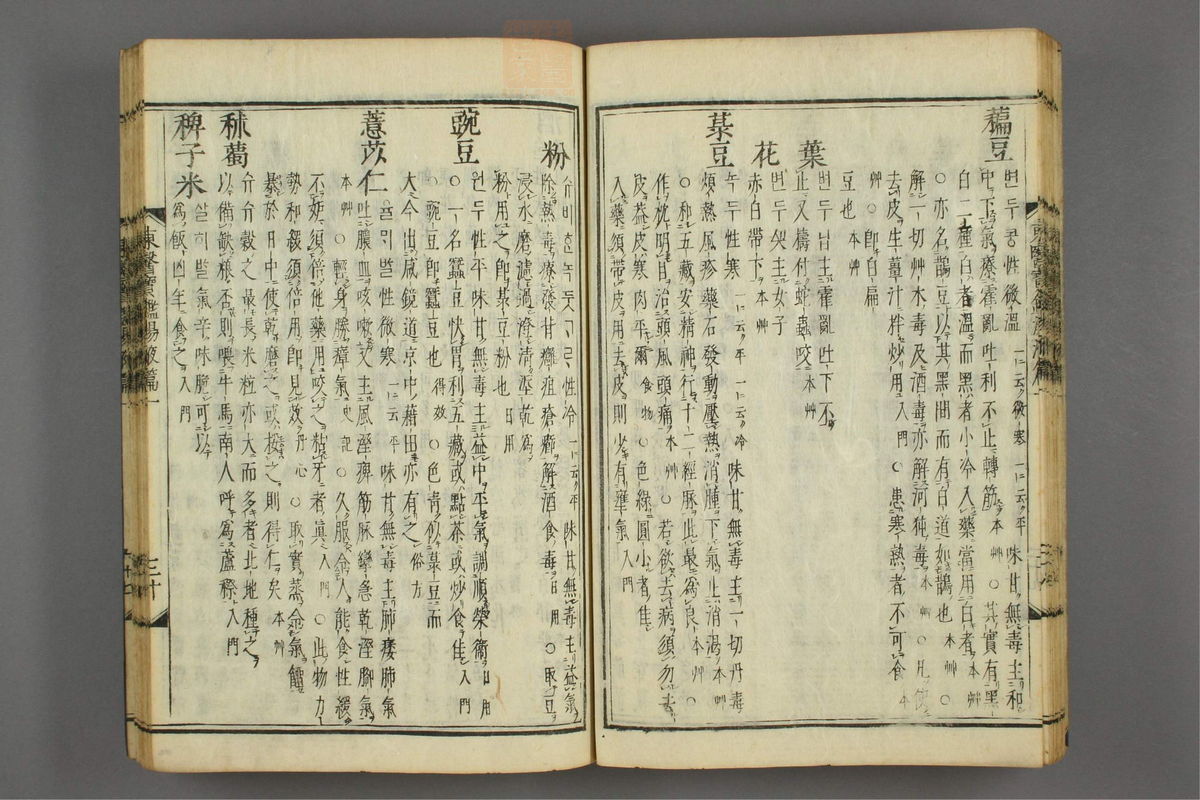 藊豆
변두콩性微溫一云微寒一云平味甘無毒主和
中下氣療霍亂吐利不止轉筋本艸○其實有黑
白二種白者溫而黑者小冷入藥當用白者本艸
○亦名鵲豆以其黑間而有白道如鵲也本艸○
解一切艸木毒及酒毒亦解河㹠毒本艸○凡使
去皮生薑汁拌炒用入門○患寒熱者不可食本
艸○卽白扁
豆也本艸
葉
변두닙主霍亂吐下不
止又擣付蛇蟲咬本艸
花
변두곳主女子
赤白帶下本艸
菉豆
녹두性寒一云平一云冷味甘無毒主一切丹毒
煩熱風疹藥石發動壓熱消腫下氣止消渴本艸
○和五藏安精神行十二經脉此最爲良本艸○
作枕明目治頭風頭痛本艸○若欲去病須勿去
皮盖皮寒肉平爾食物○色綠圓小者佳
入藥須帶皮用去皮則少有壅氣入門
粉
性冷一云平味甘無毒主益氣
除熱毒療發背癰疽瘡癤解酒食毒日用○取豆
浸水磨濾過澄清堊乾爲
粉用之卽菉豆粉也日用
豌豆
원두性平味甘無毒主益中平氣調順榮衛日用
○一名蠶豆快胃利五藏或點茶或炒食佳入門
○豌豆卽蠶豆也得效○色靑似菉豆而
大今出咸鏡道京中藉田亦有之俗方
薏苡仁
율믜ᄡᆞᆯ性微寒一云平味甘無毒主肺痿肺氣
吐膿血咳嗽又主風溼痺筋脉攣急乾溼脚氣
本艸○輕身勝瘴氣史記○久服令人能食性緩
不妬須倍他藥用咬之粘牙者眞入門○此物力
勢和緩須倍用卽見效丹心○取實蒸令氣餾
暴於日中使乾磨之或挼之則得仁矣本艸
秫薥
穀之最長米粒亦大而多者北地種之
以備缺粮否則喂牛馬南人呼爲蘆穄入門
稗子米
氣辛味脆可以
爲飯凶年食之入門
東醫寶鑑湯液篇一
三十